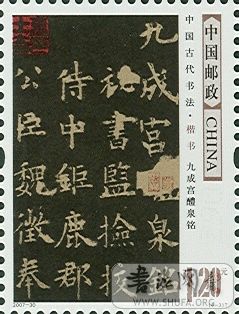 中国邮政 CHINA
中国古代书法·楷书 九成宫醴泉铭
九成宮醴泉銘
秘書監撿挍
侍中鉅鹿郡
公臣魏徵奉
120元
2007-30
WWW.SHUFA.ORG